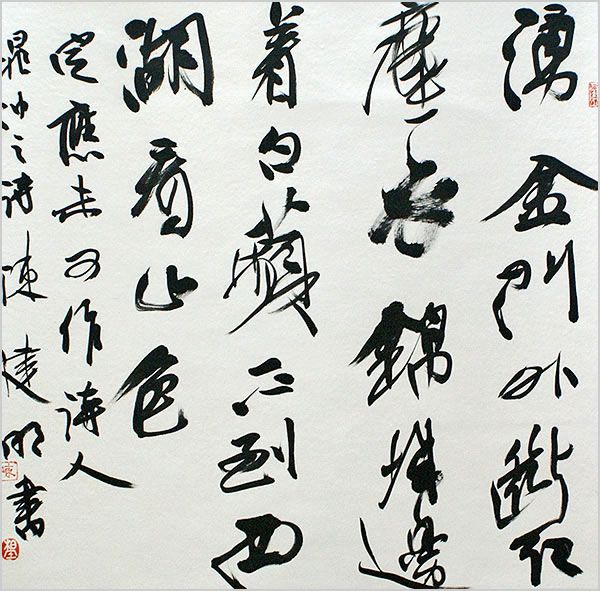 湧金門外斷紅
塵衣錦城邊
着白蘋不到西
湖看山色
定應未可作詩人
晁冲之詩陳建明書